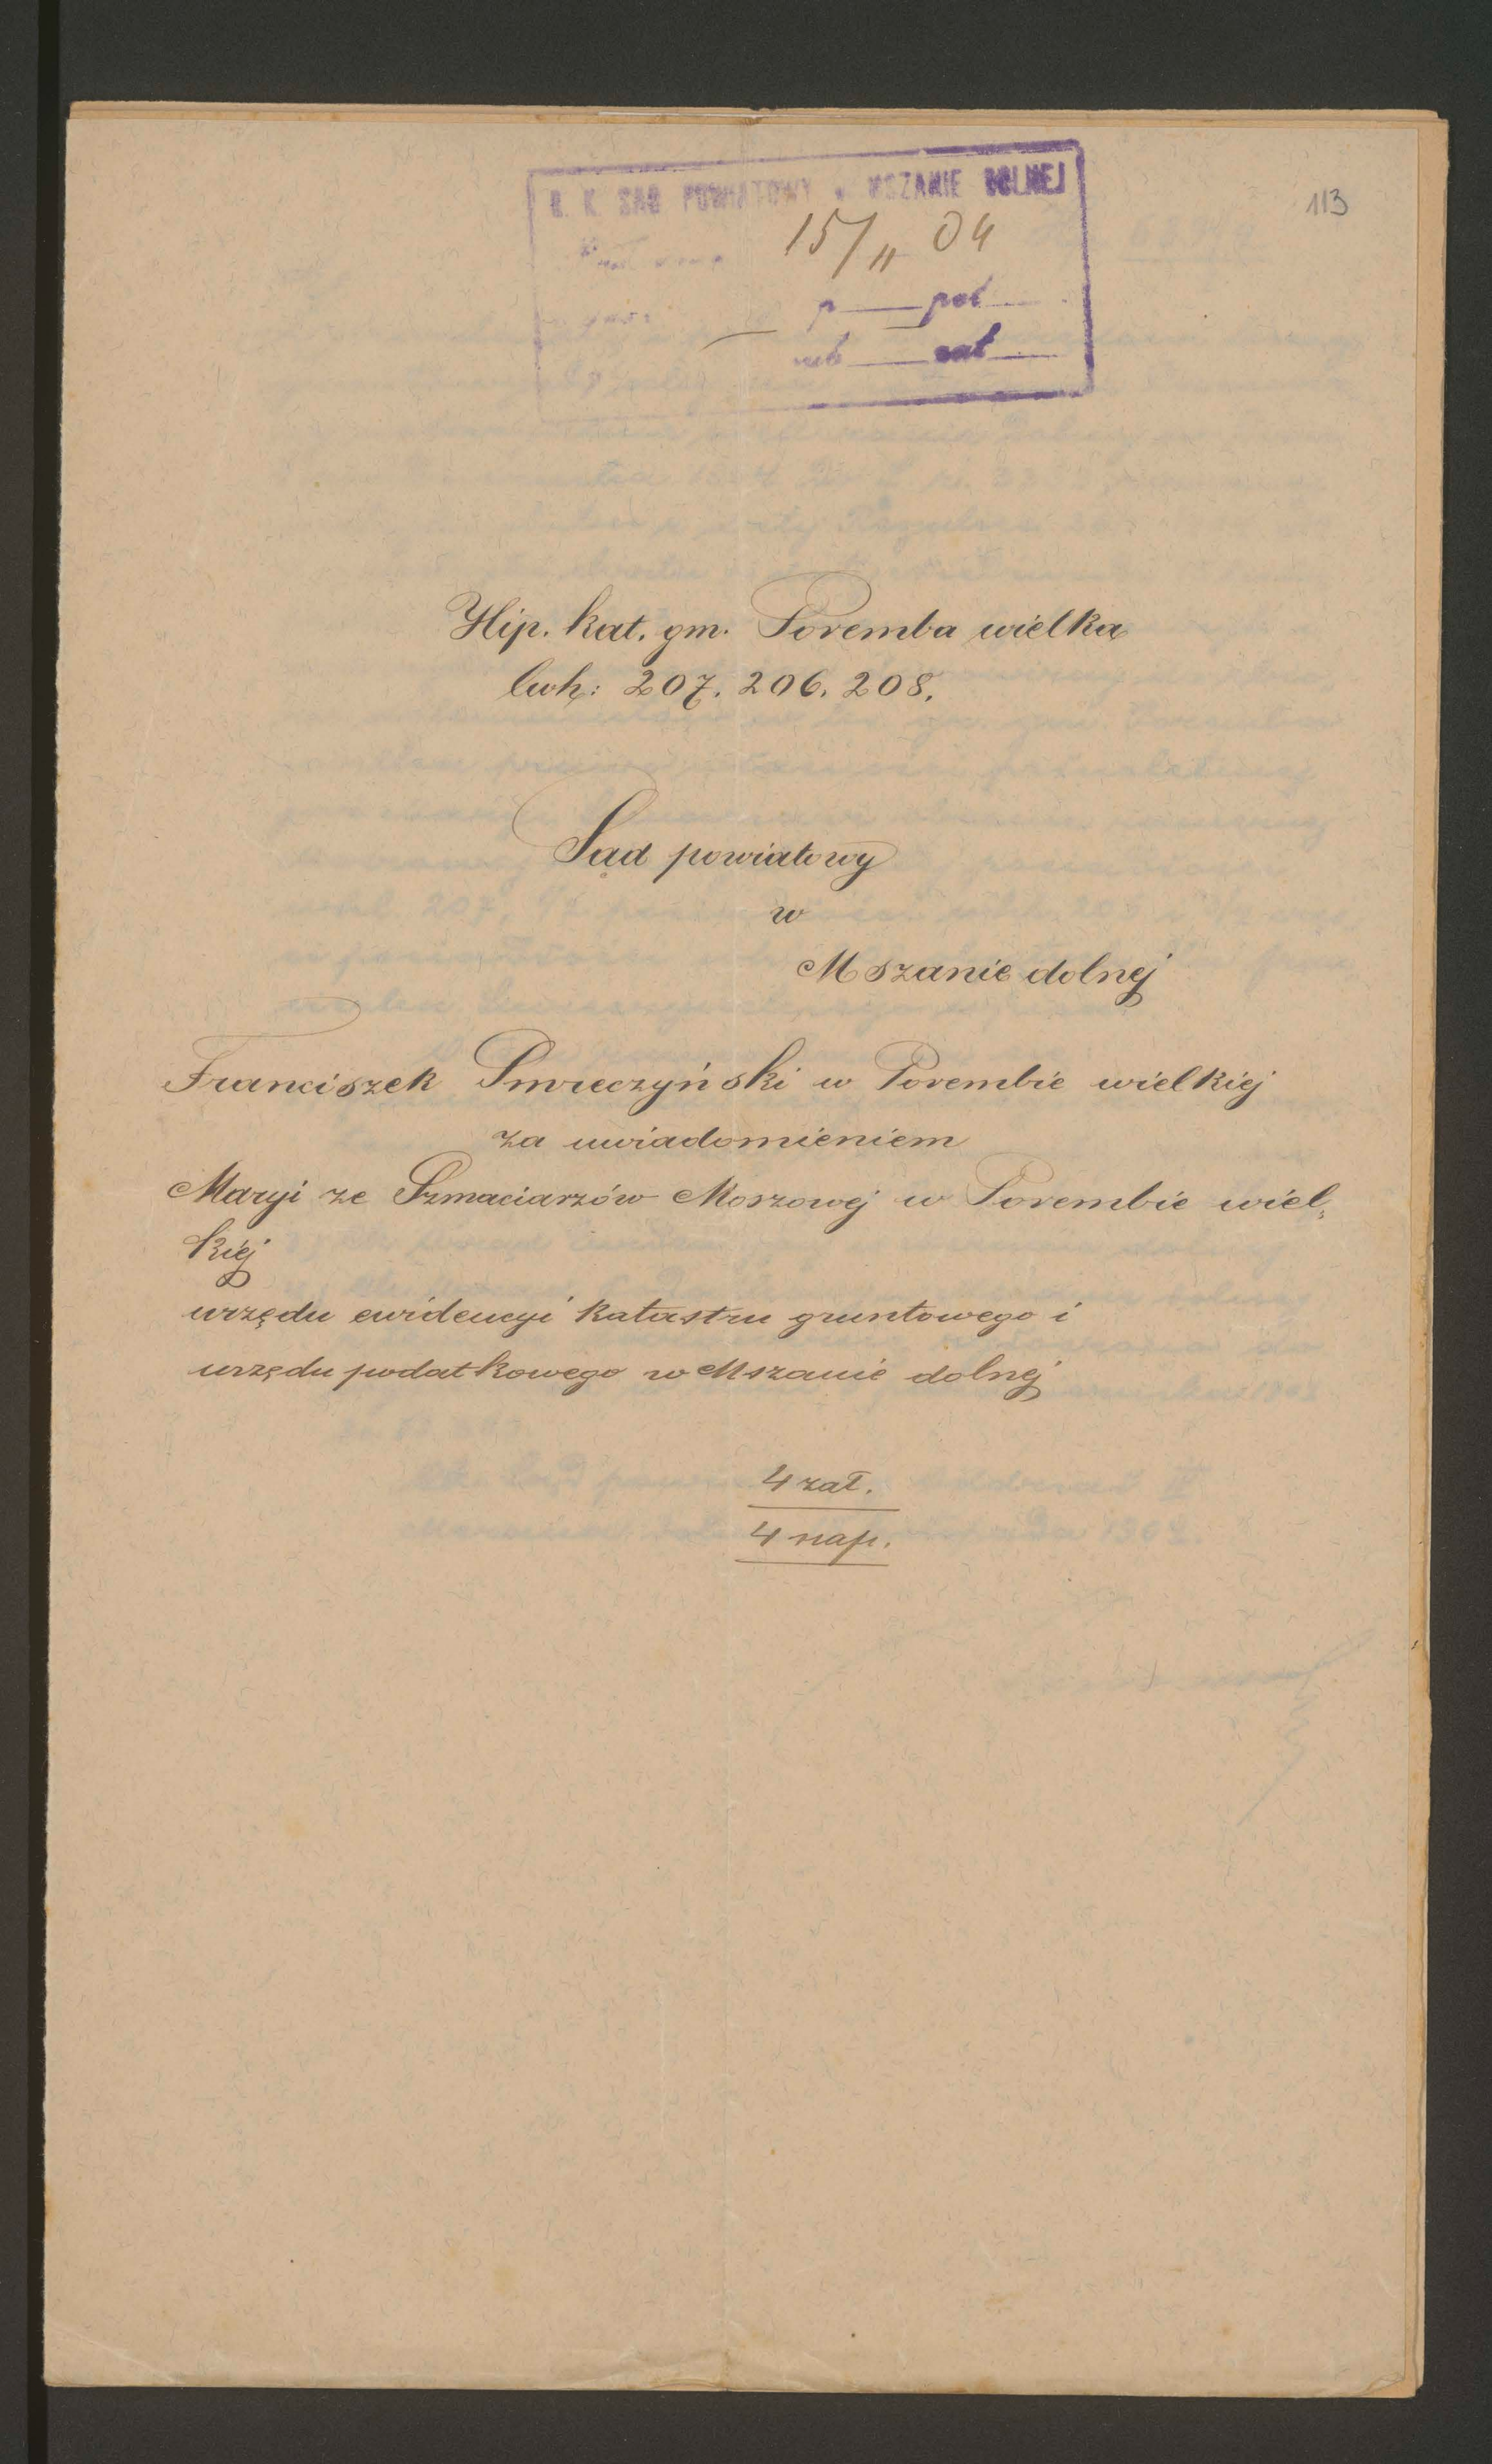 C. K. SĄD POWIATOWY w MSZANIE DOLNEJ
113
15/11 04
p pol
zał
Hip. kat. gm. Poremba wielka
lwh: 207. 206. 208.
Sąd powiatowy
w
Mszanie dolnej
Franciszek Smreczyński w Porembie wielkiej
za uwiadomieniem
Maryi ze Szmaciarzów Moszowej w Porembie wiel„
kiej
urzędu ewidencyi katastru gruntowego i
urzędu podatkowego w Mszanie dolnej
4 zał.
4 nap.